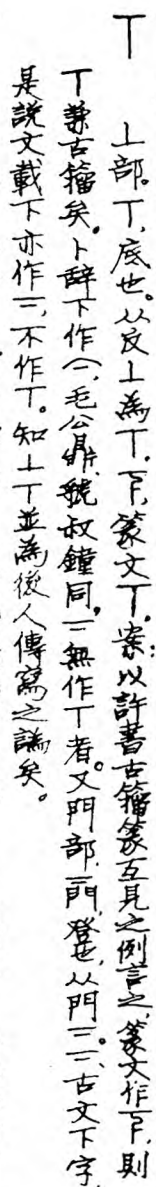 丅
丄部。丅，底也。从反丄為丅。下，篆文丅。案：以許書古籀篆互見之例言之，篆文作下，則
丅兼古籀矣。卜辭下作⌒一，毛公鼎、虢叔鐘同。二無作丅者。又門部，𨳇，登也，从門二。二，古文下字，
是說文載下亦作二，不作丅。知丄丅並為後人傳寫之譌矣。